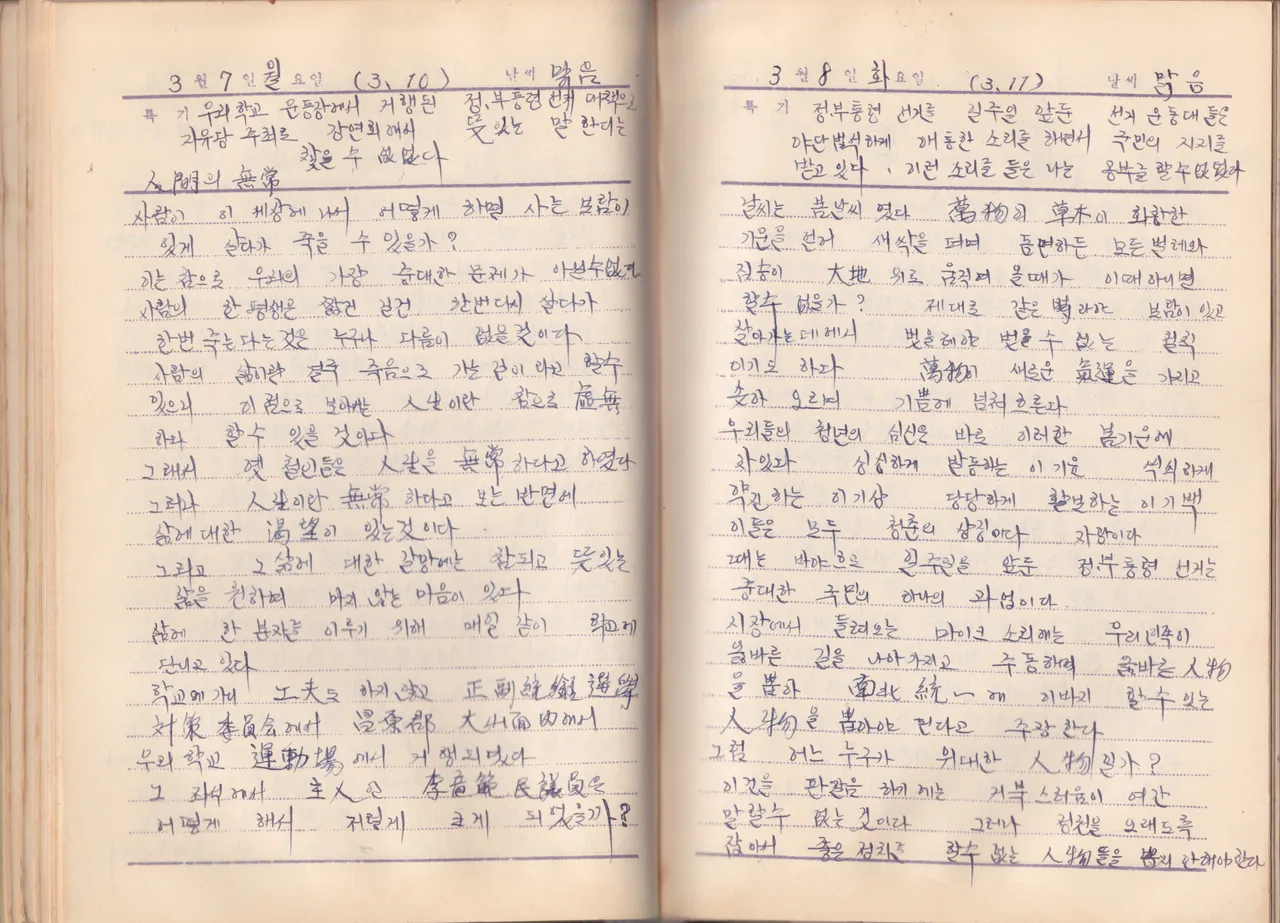 3월 7일 월요일 (3, 10) 날씨 맑음
특기 우리학교 운동장에서 거행된 정.부통령 선거 대책으로
자유당 주최로 강연회에서 뜻있는 말 한디는
찾을 수 없었다
人間의 無常
사람이 이 세상에 나서 어떻게 하면 사는 보람이
있게 살다가 죽을 수 있을가?
이는 참으로 우리의 가장 중대한 문제가 아닐수없다
사람의 한평생은 짧건 길건 한번 다시 살다가
한번 죽는다는것은 누구나 다름이 없을것이다
사람의 삶이란 결국 죽음으로 가는 길이라고 할수
있으니 이 점으로 보아선 人生이란 참으로 虛無
하다 할수 있을 것이다
그래서 옛 철인들은 人生을 無常하다고 하였다
그러나 人生이란 無常하다고 보는 반면에
삶에대한 渴望이 있는것이다.
그리고 그 삶에 대한 갈망에는 참되고 뜻있는
삶을 원하여 마지 않는 마음이 있다
삶에 한 분자를 이루기 위해 매일 같이 학교에
단니고 있다
학교에 가니 工夫도 하지 않고 正副統領選擧
対策委員会에서 昌原郡 大山面內에서
우리 학교 運動場에서 거행되였다
그 좌석에서 主人인 李 範 民議員은
어떻게 해서 저렇게 크게 되였을가?
3월 8일 화요일 (3, 11) 날씨 맑음
특기 정.부통령 선거를 일주일 앞둔 선거 운동대들은
야단법식하게 애통한 소리를 하면서 국민의 지지를
받고 있다. 이런 소리를 들은 나는 공부를 할수 없었다
날씨는 봄날씨 였다 萬物의 草木이 화황한
기운을 얻어 새싹을 띄며 동면하든 모든 벌레와
짐승이 大地 위로 움직여 올때가 이때 아니면
할수 없을가? 제대로 같은 때라야 보람이 있고
살아가는데에서 벗을해야 벗을 수 없는 철칙
이기도 하다 萬物이 새로운 氣運을 가지고
솟아 오르며 기쁨에 넘쳐흐른다
우리들의 청년의 심신은 바로 이러한 봄기운에
차있다 싱싱하게 발동하는 이 기운 씩씩하게
약진하는 이 기상 당당하게 활보하는 이 기백
이들은 모두 청춘의 상징이다 자랑이다
그때는 바야흐로 일주일을 앞둔 정.부통령 선거는
중대한 국민의 하나의 과업이다.
시장에서 들려오는 마이크 소리에는 우리민족이
올바른 길을 나아가지고 주동하며 올바른 人物
을 뽑아 南北統一에 이바지 할수 있는
人物을 뽑아야 된다고 주장한다
그럼 어느 누구가 위대한 人物일가?
이것을 판결을 하기에는 거부스러움이 여간
말할수 없는 것이다 그러나 정권을 오래도록
잡아서 좋은 정치를 할수 없는 人物들을 뽑지 안해야 한다